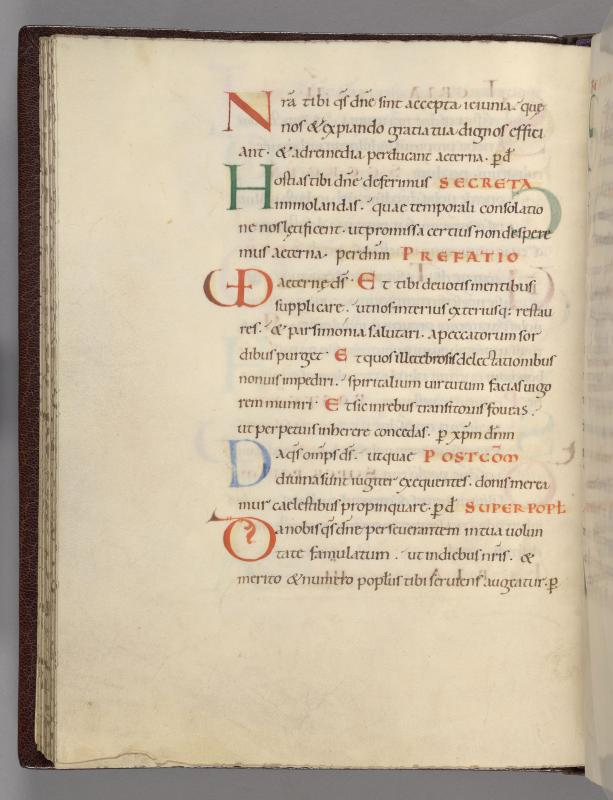 Nr̄a tibi qs̄ dn̄e sint accepta ieiunia. que
nos & expiando gratia tua dignos effici
ant. & ad remedia perducant aeterna. p̲ d̄
Hostias tibi dn̄e deferimus SECRETA
immolandas. quae temporali consolatio
ne nos lętificent. ut promissa certius non despere
mus aeterna. per dn̄m PREFATIO
VD aeternę ds̄. Et tibi deuotis mentibus
supplicare. ut nos interius exteriusq; restau
res. & parsimonia salutari. a peccatorum sor
dibus purget. Et quos illecebrosis delectationibus
non uis impediri. spiritalium uirtutum facias uigo
rem muniri. Et sic in rebus transitoriis foueas.
ut perpetuis inherere concedas. p̲ xp̄m dn̄m
Da qs̄ omp̄s ds̄. ut quae POSTCŌM
diuina sunt iugiter exequentes. donis merea
mur caelestibus propinquare. p̲ d̄ SUPER POPL̄
Da nobis qs̄ dn̄e perseuerantem in tua uolun
tate famulatum. ut in diebus nr̄is. &
merito & numero popl̄us tibi seruiens augeatur. p̲